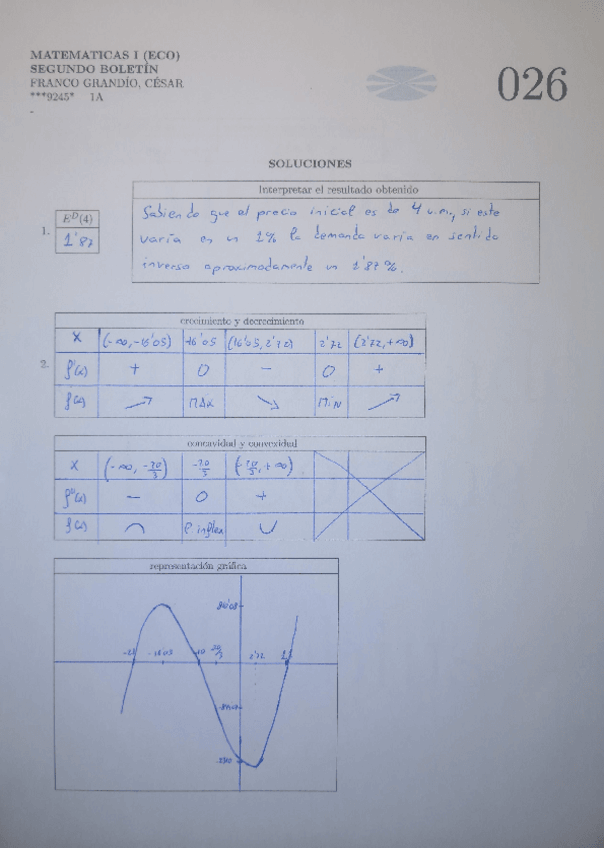 MATEMATICAS I (ECO)
SEGUNDO BOLETÍN
FRANCO GRANDÍO, CÉSAR
***9245* 1A
-
026
SOLUCIONES
Interpretar el resultado obtenido
1. E^D(4)
1'87
Sabiendo que el precio inicial es de 4 u.m., si este
varía en un 1% la demanda varía en sentido
inverso aproximadamente un 1'87%.
2.
crecimiento y decrecimiento
X (-∞,-16'05) -16'05 (16'05, 2'72) 2'72 (2'72,+∞)
f'(x) + 0 - 0 +
f(x) MÁX MÍN
concavidad y convexidad
X (-∞, -20/3) -20/3 (-20/3, +∞)
f''(x) - 0 +
f(x) P. inflex
representación gráfica
-16'05 2'72